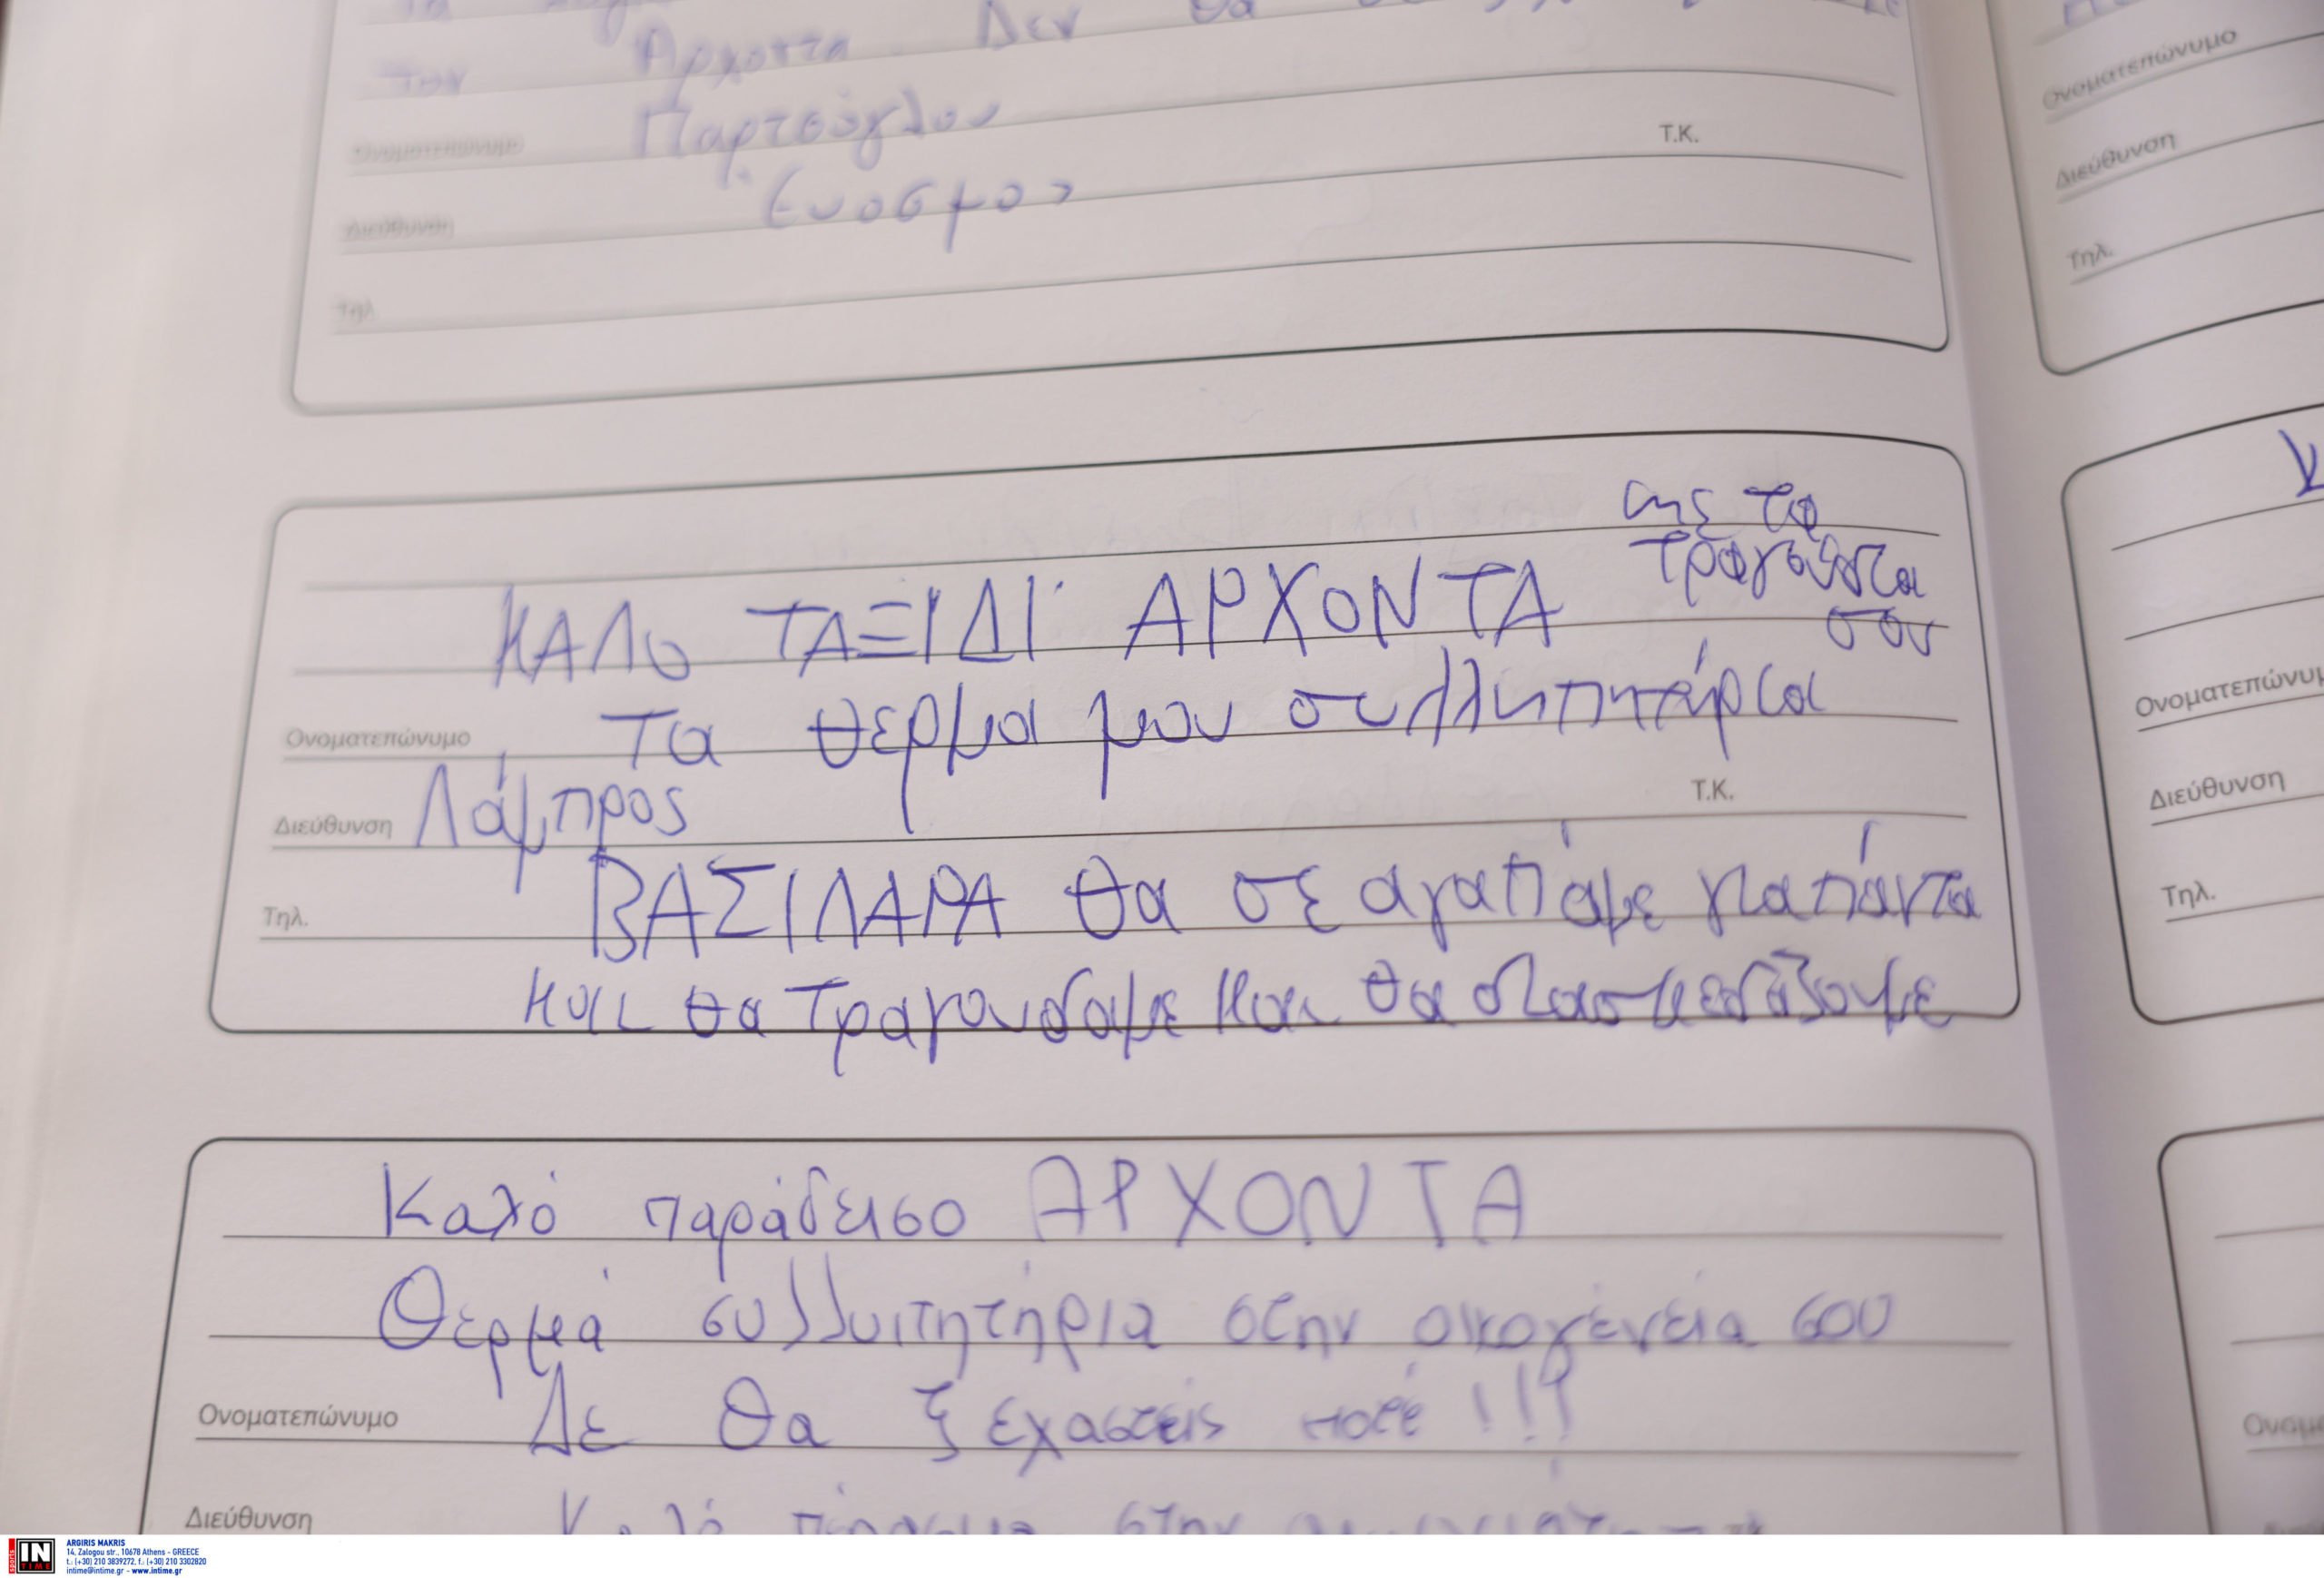 Αρχοντα Δεν θα
τον
Ονοματεπώνυμο Παρτσόγλου
Τ.Κ.
Διεύθυνση Ευοσμος
Τηλ.
με τα
τραγούδια
σου
ΚΑΛΟ ΤΑΞΙΔΙ ΑΡΧΟΝΤΑ
Ονοματεπώνυμο Τα θερμα μου συλληπητήρια
Διεύθυνση Λάμπρος Τ.Κ.
Τηλ. ΒΑΣΙΛΑΡΑ θα σε αγαπάμε για πάντα
και θα τραγουδαμε και θα διασκεδάζουμε
Καλό παράδεισο ΑΡΧΟΝΤΑ
Θερμά συλλυπητήρια στην οικογένεια σου
Ονοματεπώνυμο Δε θα ξεχαστείς ποτέ !!!
Διεύθυνση Καλό στην
Ονοματεπώνυμο
Διεύθυνση
Τηλ.
Ονοματεπώνυμ
Διεύθυνση
Τηλ.
IN TIME sports
ARGIRIS MAKRIS
14, Zalogou str., 10678 Athens - GREECE
t.: (+30) 210 3839272, f.: (+30) 210 3302820
intime@intime.gr - www.intime.gr